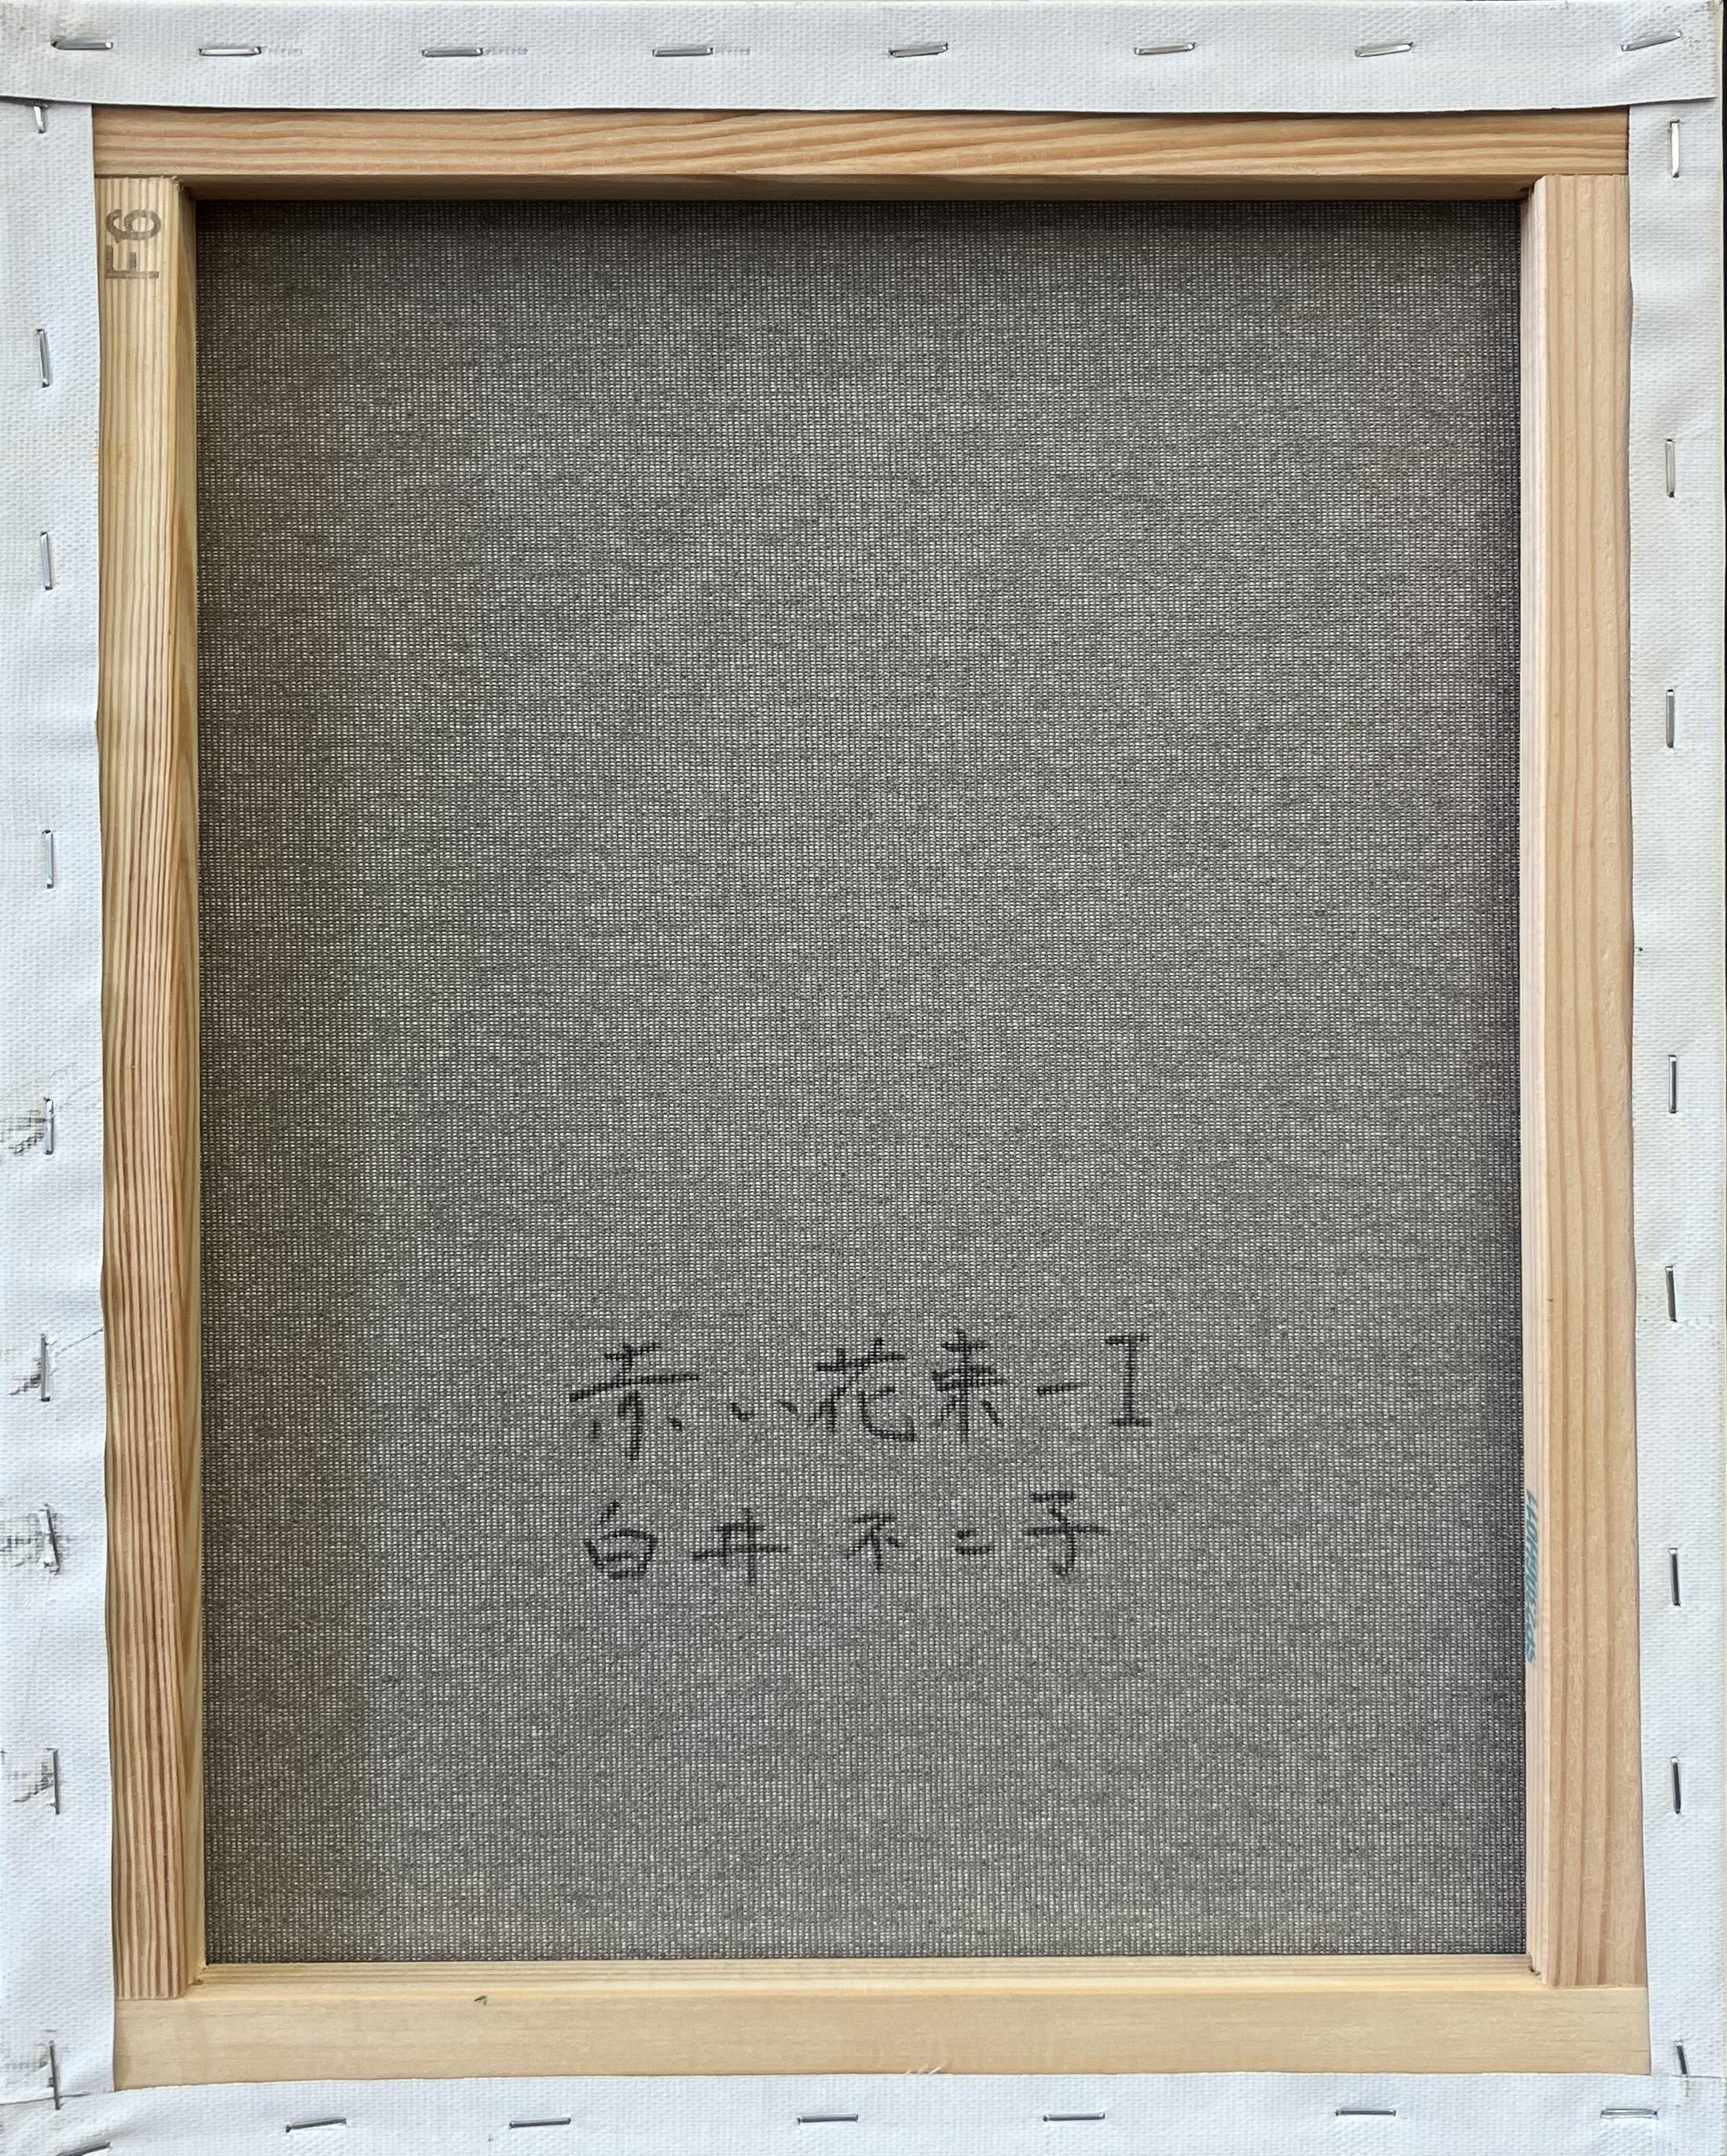 F6
赤い花束-I
白井不二子